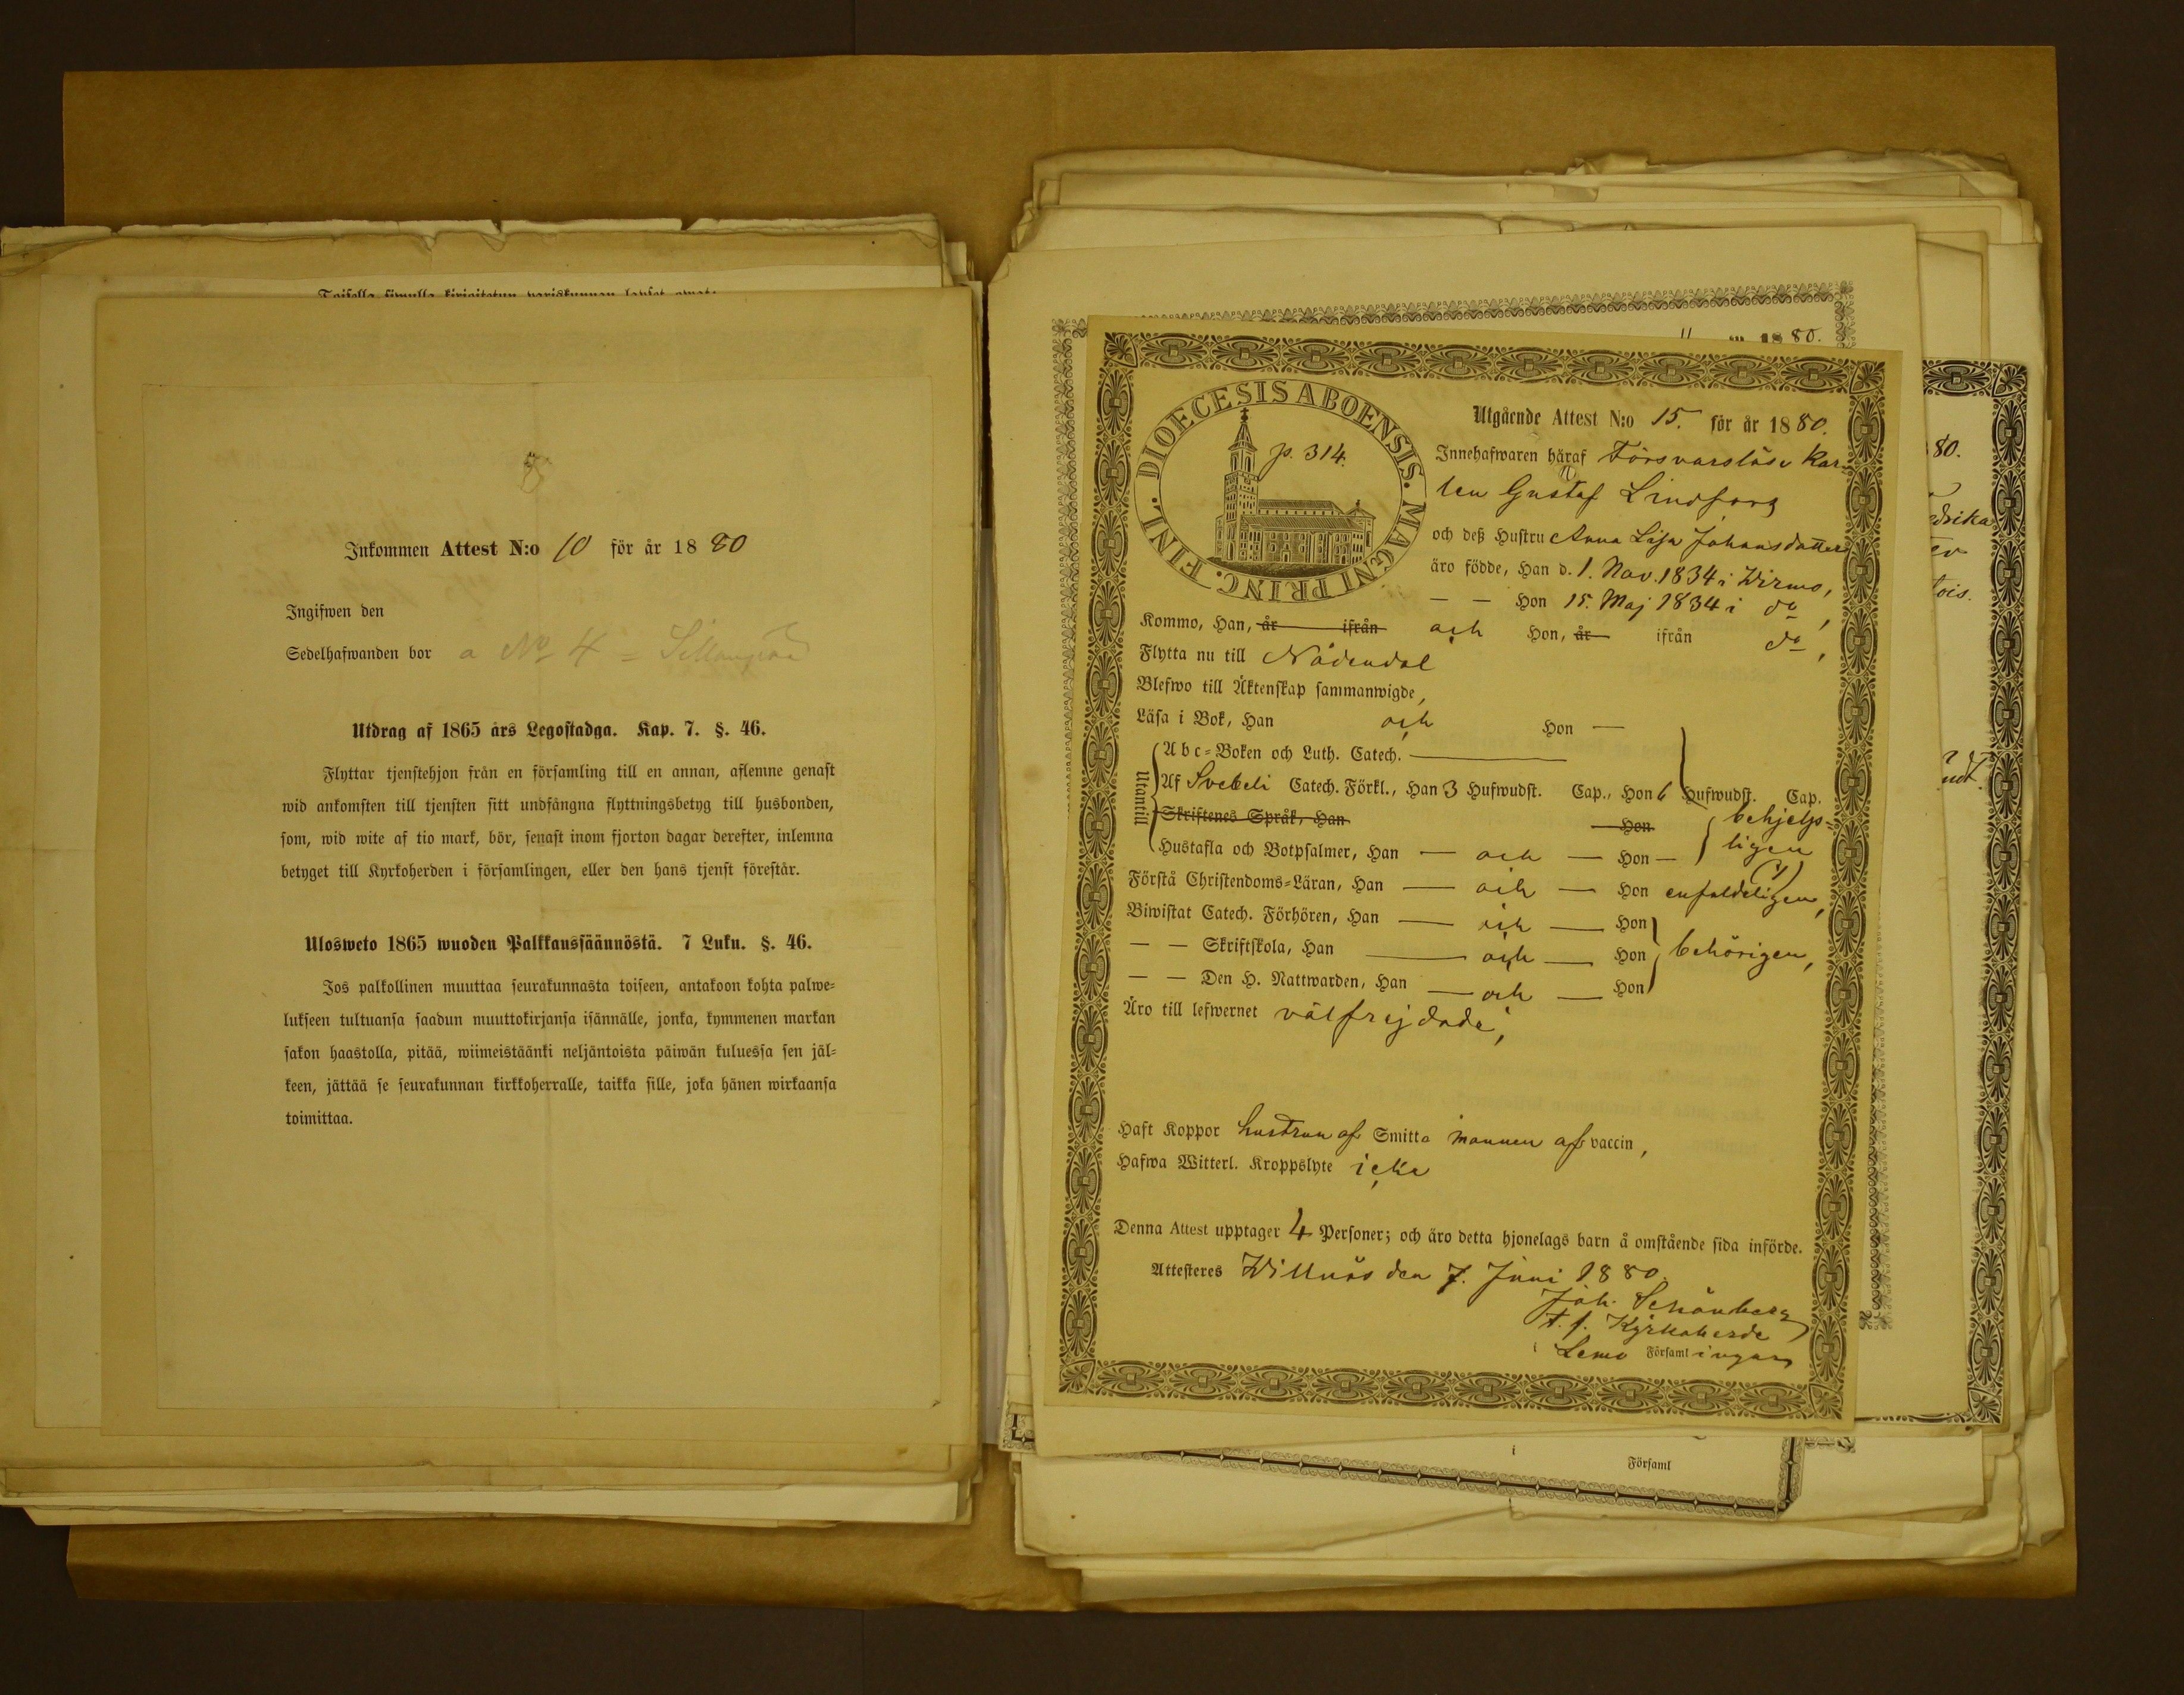 Inkommen Attest N:o 10 för år 1880
Ingifwen den
Sedelhafwanden bor a No 4
Utdrag af 1865 års Legostadga. Kap. 7. §. 46.
Flyttar tjenstehjon från en församling till en annan, aflemne genast
wid ankomsten till tjensten sitt undfångna flyttningsbetyg till husbonden,
som, wid wite af tio mark, bör, senast inom fjorton dagar derefter, inlemna
betyget till Kyrkoherden i församlingen, eller den hans tjenst förestår.
Ulosweto 1865 wuoden Palkkaussäännöstä. 7 Luku. §. 46.
Jos palkollinen muuttaa seurakunnasta toiseen, antakoon kohta palwe-
lukseen tultuansa saadun muuttokirjansa isännälle, jonka, kymmenen markan
sakon haastolla, pitää, wiimeistäänki neljäntoista päiwän kuluessa sen jäl-
keen, jättää se seurakunnan kirkkoherralle, taikka sille, joka hänen wirkaansa
toimittaa.
80.
DIOECESIS ABOENSIS. MAGNI PRINC. FINL.
p. 314.
Utgående Attest N:o 15. för år 1880.
Innehafwaren häraf Försvarslöse Kar-
len Gustaf Lindfors
och deß Hustru Anna Lisa Johansdotter
äro födde, Han d. 1. Nov. 1834 i Wirmo,
— — Hon 15. Maj 1834 i do,
Kommo, Han, år ifrån och Hon, år ifrån do,
Flytta nu till Nådendal
Blefwo till Äktenskap sammanwigde,
Läsa i Bok, Han och Hon —
Utantill
Abc-Boken och Luth. Catech. —
Af Svebeli Catech. Förkl., Han 3 Hufwudst. Cap., Hon 6 Hufwudst. Cap.
Skriftenes Språk, Han Hon
behjelp-
ligen
Hustafla och Botpsalmer, Han — och — Hon —
Förstå Christendoms-Läran, Han — och — Hon enfaldeligen,
Biwistat Catech. Förhören, Han — och — Hon
— — Skriftskola, Han — och — Hon behörigen,
— — Den H. Nattwarden, Han — och — Hon
Äro till lefwernet välfrejdade,
Haft Koppor hustrun af Smitta mannen af vaccin,
Hafwa Witterl. Kroppslyte icke
Denna Attest upptager 4 Personer; och äro detta hjonelags barn å omstående sida införde.
Attesteres Willnäs den 7. Juni 1880.
Joh. Schönberg
t. f. Kyrkoherde
i Lemo Församlingar
80.
i Församl